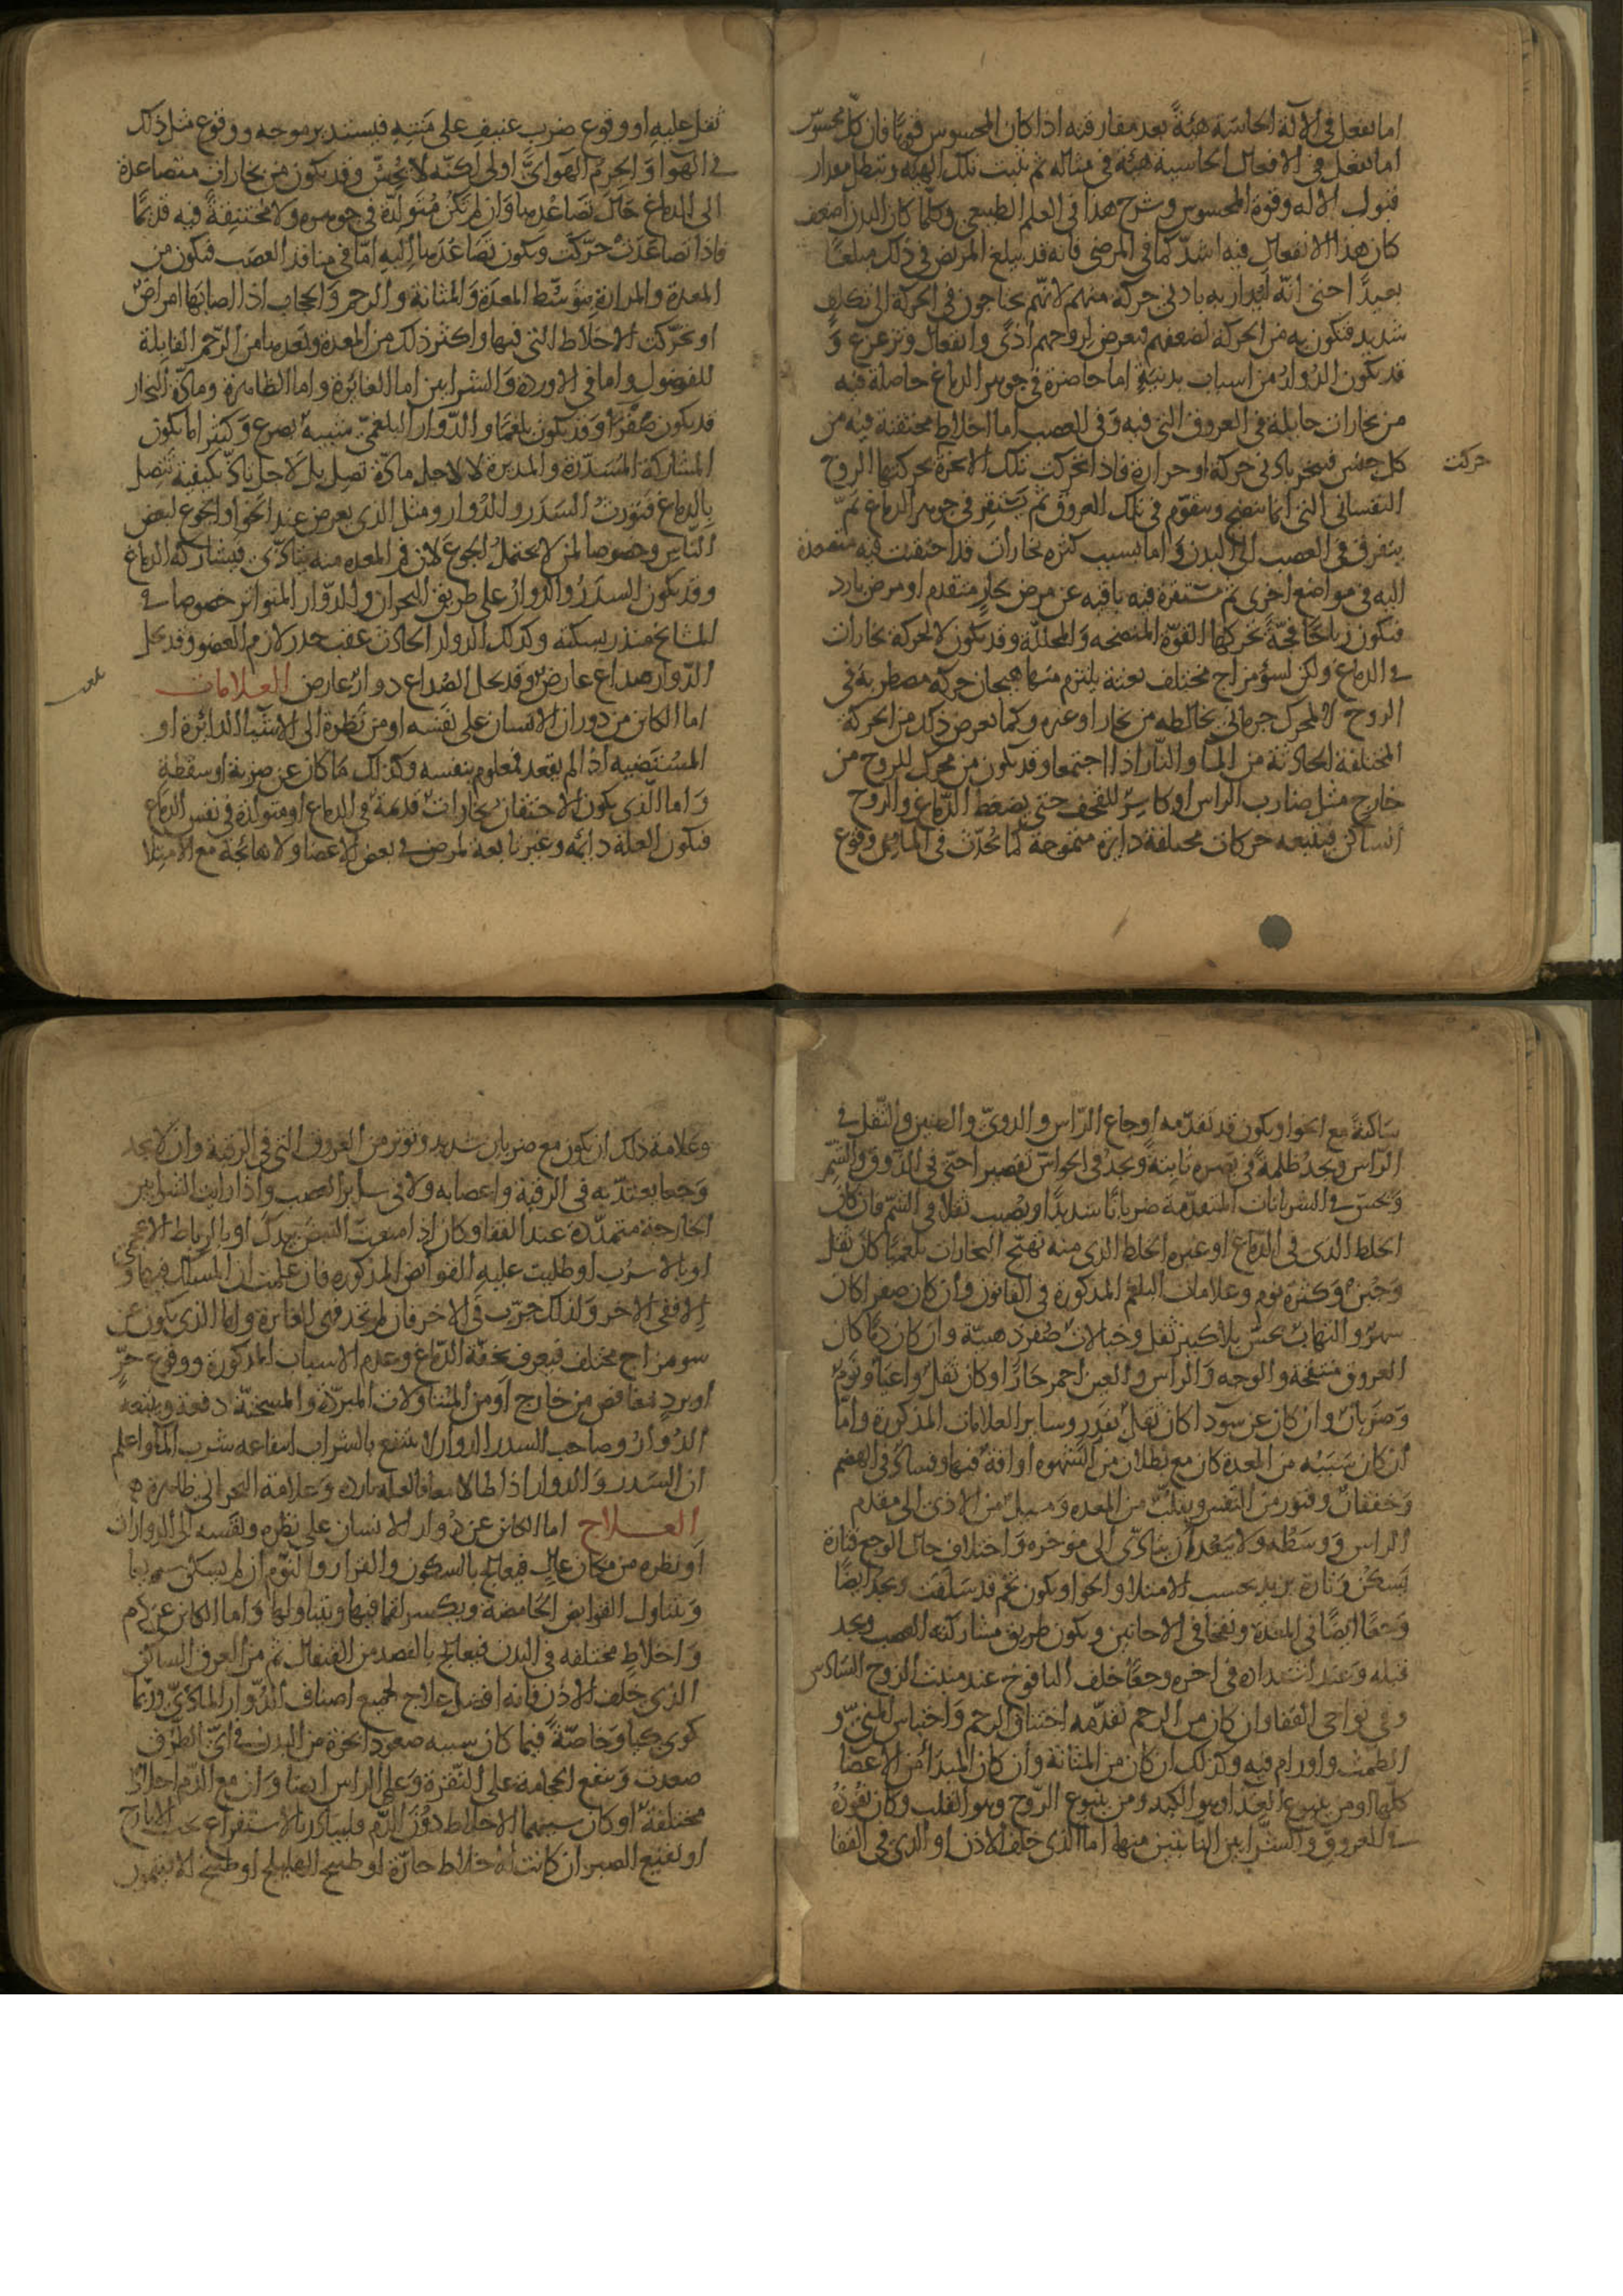 اما تفعل فى الآلة الحاسة هيئة بعد مفارقته اذا كان المحسوس قويا فان كل محسوس
انما تفعل فى الافعال الحاسية هيئة فى مثاله ثم تثبت تلك الهيئة وتبطل بمقدار
قبول الالة وقوة المحسوس وشرح هذا فى العلم الطبيعى وكلما كان البدن اضعف
كان هذا الانفعال فيه اشد كما فى المرضى فانه قد يبلغ المرض فى ذلك مبلغا
بعيدا حتى انه ليدار به بادنى حركة منهم لانهم يحتاجون فى الحركة الى تكلف
شديد فتكون به من الحركة لضعفهم فيعرض لروحهم اذى وانفعال وتزعزع و
قد يكون الدوار من اسباب بدنية اما حاضرة فى جوهر الدماغ حاصلة فيه
من بخارات حايلة فى العروق التى فيه وفى العصب اما اخلاط محتقنة فيه من
كل جنس فتبخر بادنى حركة او حرارة فاذا تحركت تلك الابخرة بحركتها الروح
حركت
النفسانى التى انما تنضج وتتقوم فى تلك العروق ثم يستقر فى جوهر الدماغ ثم
يتفرق فى العصب الى البدن واما بسبب كثرة بخارات قد احتقنت فيه متصعدة
اليه فى مواضع اخرى ثم مستقرة فيه باقيه عن مرض حار متقدم او مرض بارد
فتكون رياحا فجة تحركها القوة المنضجه والمحللة وقد يكون لا لحركة بخارات
فى الدماغ ولكن لسوء مزاج مختلف بغتة يلتزم منها هيجان حركة مضطربة فى
الروح لا لمحرك جرمانى يخالطه من بخار او غيره وكما يعرض ذلك من الحركة
المختلفة الحادثة من الماء والنار اذا اجتمعا وقد يكون من محرك للروح من
خارج مثل ضارب الراس او كاسر للقحف حتى يضغط الدماغ والروح
الساكن فيتبعه حركات مختلفة دايرة متموجة كما يحدث فى الماء من وقوع
ثقل عليه او وقوع ضرب عنيف على متنه فيستدير موجه ووقوع مثل ذلك
فى الهوا والجرم الهوائى اولى لكنه لا يحس وقد يكون من بخارات متصاعدة
الى الدماغ حال تصاعدها وان لم تكن متولدة فى جوهره ولا محتقنة فيه قديما
فاذا تصاعدت حركت ويكون تصاعدها اليه اما فى منافذ العصب فتكون من
المعدة والمرارة بتوسط المعدة والمثانة والرحم والحجاب اذا اصابها امراض
او تحركت الاخلاط التى فيها واكثر ذلك من المعدة وبعدها من الرحم القابلة
للفضول واما فى الاوردة والشرايين اما الغائرة واما الظاهرة ومادة البخار
قد يكون صفرا وقد يكون بلغما والدوار البلغمى شبيه بصرع وكثيرا ما يكون
المشاركة المسدرة والمديرة لا لاجل مادة تصل بل لاجل تاذ بكيفية تتصل
بالدماغ فتورث السدر والدوار ومثل الذى يعرض عند الخوا والجوع لبعض
الناس وخصوصا لمن لا يحتمل الجوع لان فم المعده منه يتاذى فيشاركه الدماغ
وقد يكون السدر والدوار على طريق البحران والدوار المتواتر خصوصا فى
المشايخ منذر بسكتة وكذلك الدوار الحادث عقب خدر لازم العضو وقد يحل
الدوار صداع عارض وقد يحل الصداع دوار عارض العلامات
اما الكائن من دوران الانسان على نفسه او من نظره الى الاشيا الدائرة او
المستضيه اذا لم يقعد فمعلوم بنفسه وكذلك ما كان عن ضربة او سقطة
واما الذى يكون لاحتقان بخارات قديمة فى الدماغ او متولدة فى نفس الدماغ
فتكون العلة دايمه وغير تابعة لمرض فى بعض الاعضا ولا هائجة مع الامتلا
ساكنة مع الخوا ويكون قد تقدمه اوجاع الراس والدوى والطنين والثقل فى
الراس ويجد ظلمة فى بصره ثابتة ويجد فى الحواس تقصيرا حتى فى الذوق والشم
ويحس فى الشريانات المتقدمة ضربانا شديدا ويصيب ثقلا فى الشم فان كان
الخلط الذى فى الدماغ او غيره الخلط الذى منه تهيج البخارات بلغميا كان ثقل
وجبن وكثرة نوم وعلامات البلغم المذكورة فى القانون وان كان صفرا كان
سهر والتهاب يحس بلا كبير ثقل وخيالات صفر ذهبية وان كان دما كان
العروق منتفخة والوجه والراس والعين احمر حارا وكان ثقل واعيا ونوم
وضربان وان كان عن سودا كان ثقل بقدر وساير العلامات المذكورة واما
ان كان سببه من المعدة كان مع بطلان من الشهوه او افة فيها وفساد فى الهضم
وخفقان وفتور من النفس وتقلب من المعده وميل من الاذى الى مقدم
الراس ووسطه ولا يبعد ان يتادى الى موخره واختلاف حال الوجع فتارة
يسكن وتارة يزيد بحسب الامتلا والخوا ويكون تخم قد سلفت ويجد ايضا
وجعا ايضا فى المعدة ونفخا فى الاحايين ويكون طريق مشاركته العصب ويجد
قبله وعند اشتداده فى اخره وجعا خلف اليافوخ عند منبت الزوج السادس
وفى نواحى القفا وان كان من الرحم تقدمه اختناق الرحم واحتباس المنى و
الطمث واورام فيه وكذلك ان كان من المثانة وان كان المبدا من الاعضا
كلها او من ينبوع الغذا وهو الكبد ومن ينبوع الروح وهو القلب وكان نفوذه
فى العروق والشرايين النابتين منها اما الذى خلف الاذن او الذى فى القفا
وعلامة ذلك ان يكون مع ضربان شديد وتوتر من العروق التى فى الرقبة وان لا يجد
وجعا يعتد به فى الرقبة واعصابه ولا فى ساير العصب واذا رايت الشرايين
الخارجة متمددة عند القفا وكان اذا منعت النبض بيدك او بالرباط الاعجمى
او بالاسرب او طليت عليه القوابض المذكورة فان علمت ان المسلك فيها و
الا ففى الاخر ولذلك جرب فى الاخر فان لم تجد فهى الغائرة واما الذى يكون عن
سو مزاج مختلف فيعرف بخفة الدماغ وعدم الاسباب المذكورة ووقوع حر
او برد مغافص من خارج او من المتناولات المبردة والمسخنة دفعة ويتبعه
الدوار وصاحب السدر الدوار لا ينتفع بالشراب انتفاعه بشرب الماء واعلم
ان السدر والدوار اذا طالا معا فالعلة باردة وعلامة البحرانى ظاهرة
العلاج اما الكائن عن دوار الانسان على نظره ونفسه الى الدوارات
او نظره من مكان عال فيعالج بالسكون والقرار والنوم ان لم يسكن سريعا
وبتناول القوابض الحامضة ويكسر لقما فيها ويتناولها واما الكائن عن دم
واخلاط مختلفه فى البدن فيعالج بالفصد من القيفال ثم من العرق الساكن
الذى خلف الاذن فانه افضل علاج لجميع اصناف الدوار المادى وربما
كوى كيا وخاصة فيما كان سببه صعود ابخرة من البدن فى اى الطرق
صعدت وينفع الحجامة على النقرة وعلى الراس ايضا وان مع الدم اخلاط
مختلفة او كان سببها الاخلاط دون الدم فليبادر بالاستفراغ بحب الايارج
او نقيع الصبر ان كانت الاخلاط حارة او طبيخ الهليلج او طبيخ الافتيمون